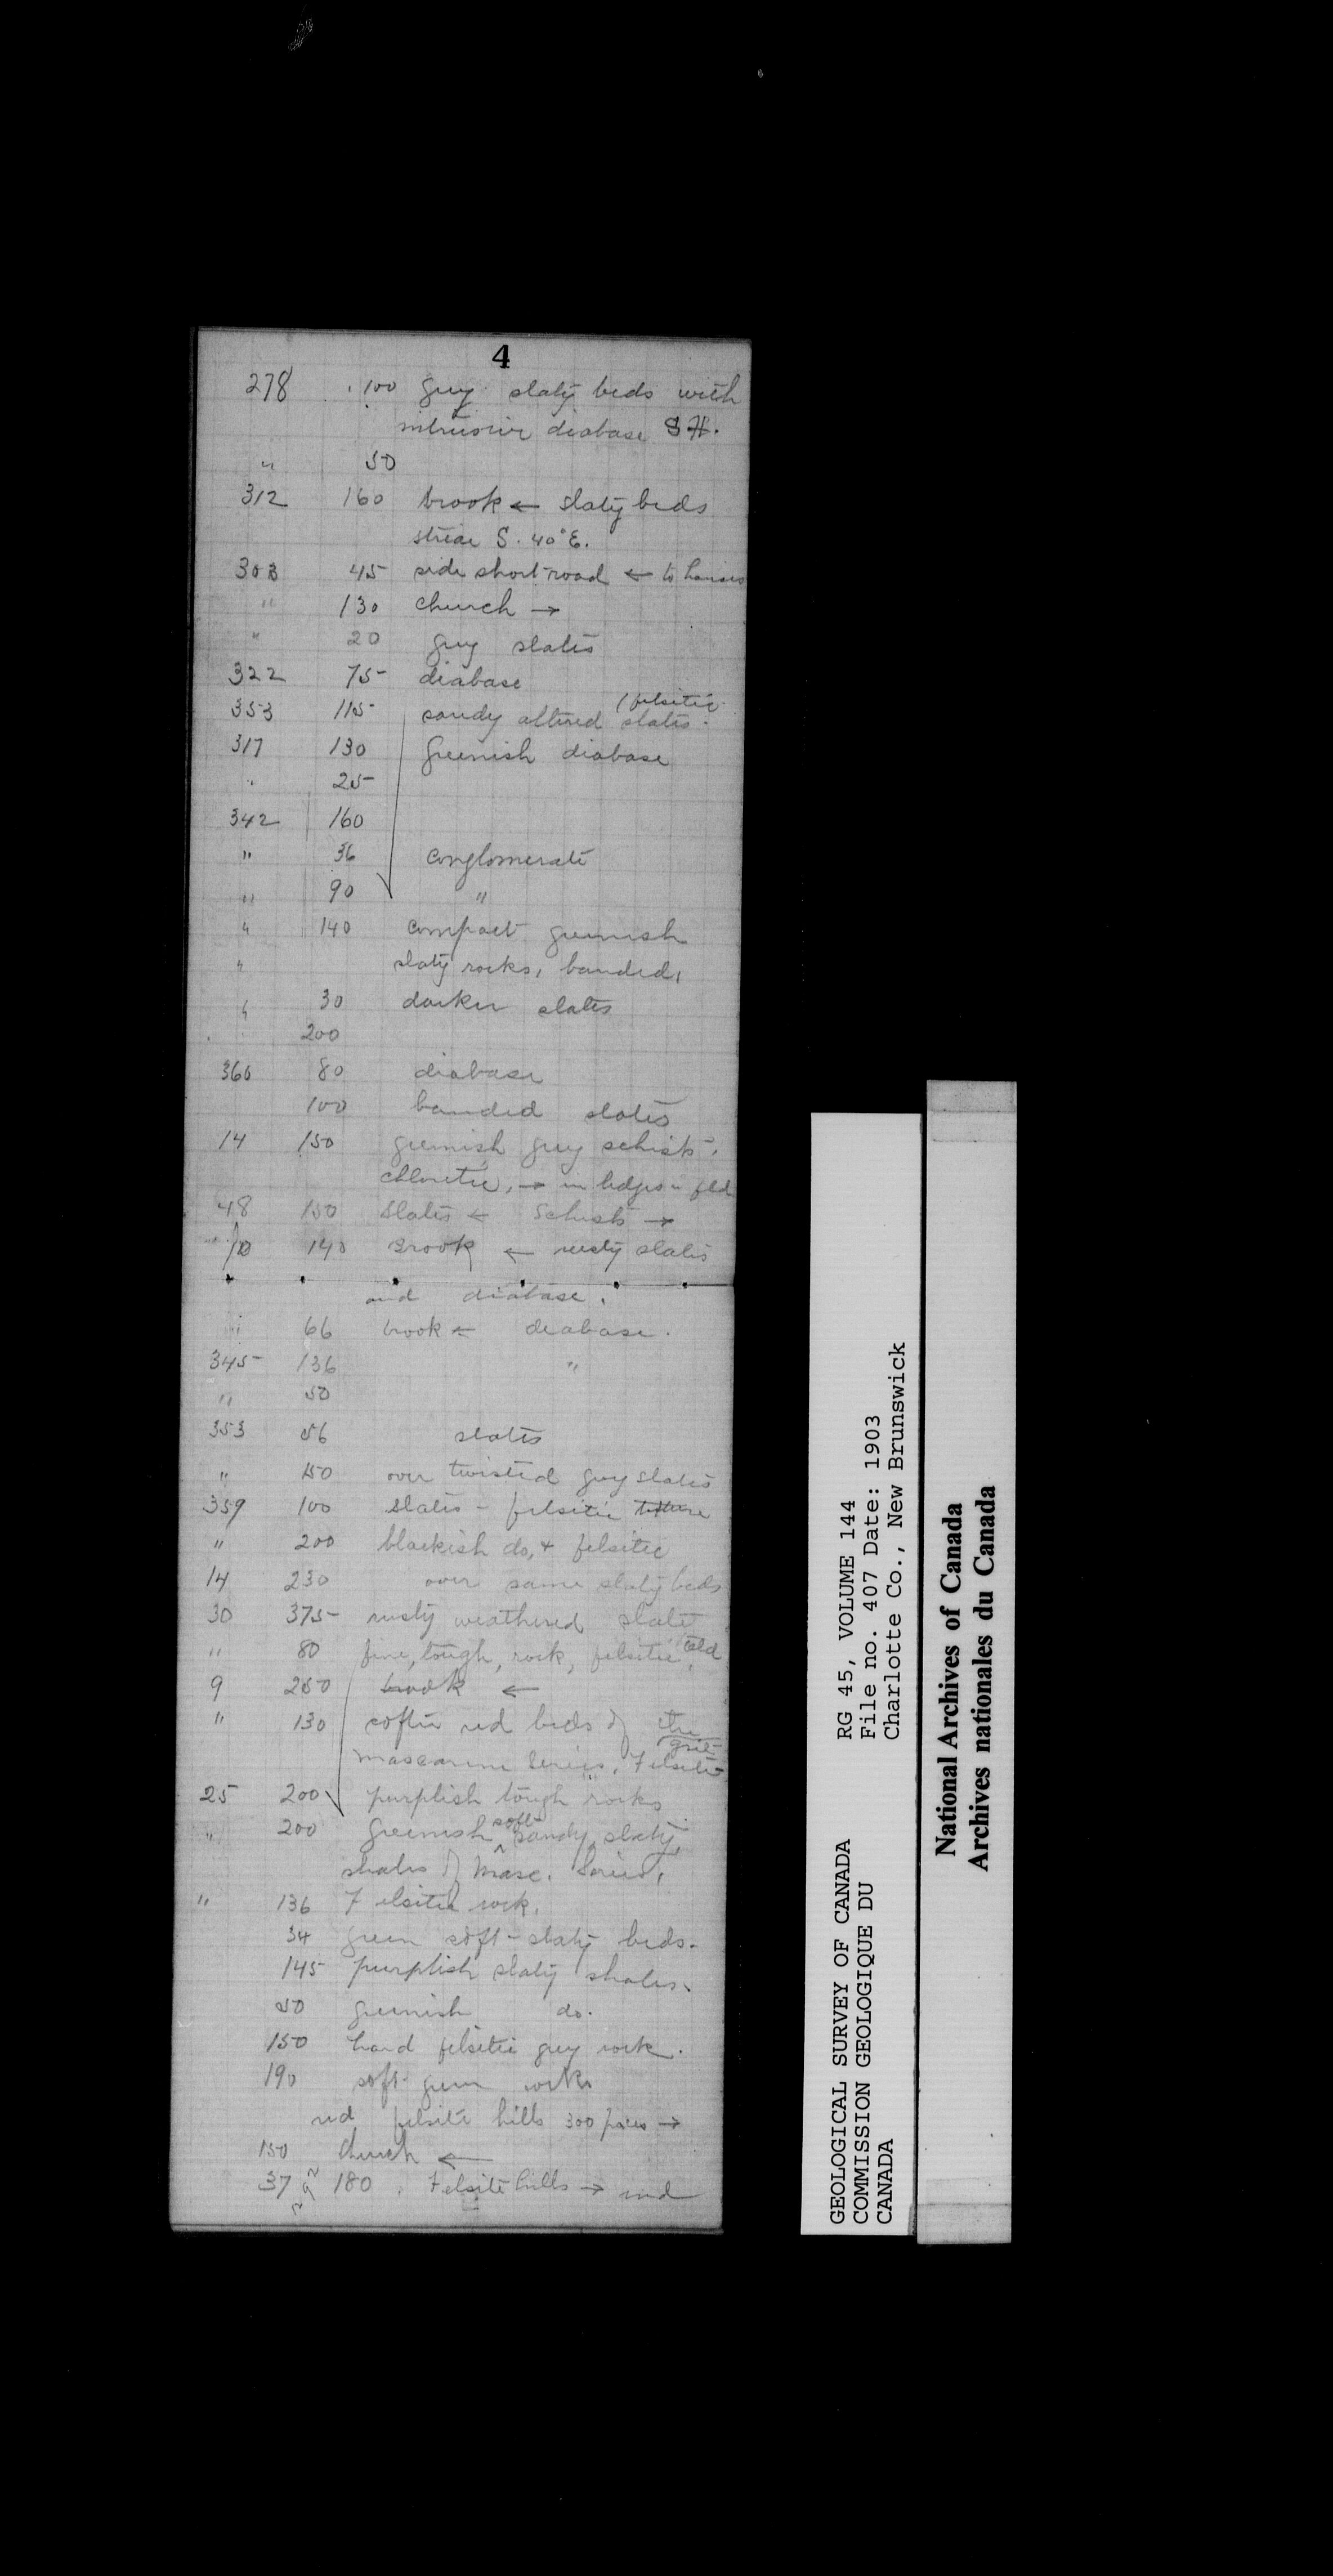 4
278 100 grey slaty beds with
intrusive diabase
" 50
312 160 brook ← slaty beds
striae S. 40° E.
303 45 side short road ← to houses
" 130 church →
" 20 grey slates
322 75 diabase
(felsitic
353 115 sandy altered slates.
317 130 greenish diabase
" 25
342 160
" 36 conglomerate
" 90 "
" 140 compact greenish
" slaty rocks, banded,
" 30 darker slates
200
360 80 diabase
100 banded slates
14 150 greenish grey schists,
chloritic, → in ledges in fld
48 150 Slates ← Schists →
10 140 Brook ← rusty slates
and diabase.
" 66 brook ← diabase.
345 136 "
" 50
353 56 slates
" 150 over twisted grey slates
359 100 slates - felsitic texture
" 200 blackish do, + felsitic
14 230 over same slaty beds
30 375 rusty weathered slate
" 80 fine, tough, rock, felsitic,
9 250 brook ←
" 130 softer red beds of the
grit
Mascarene Series. Felsite
25 200 purplish tough rocks
" 200 greenish soft sandy slaty
shales of Masc. Series,
" 136 Felsitic rock.
34 green soft slaty beds.
145 purplish slaty shales.
50 greenish do.
150 hard felsitic grey rock.
190 soft green rocks
red felsite hills 300 paces →
150 Church ←
37 292 180 . Felsite hills → red
GEOLOGICAL SURVEY OF CANADA
COMMISSION GEOLOGIQUE DU
CANADA
RG 45, VOLUME 144
File no. 407 Date: 1903
Charlotte Co., New Brunswick
National Archives of Canada
Archives nationales du Canada